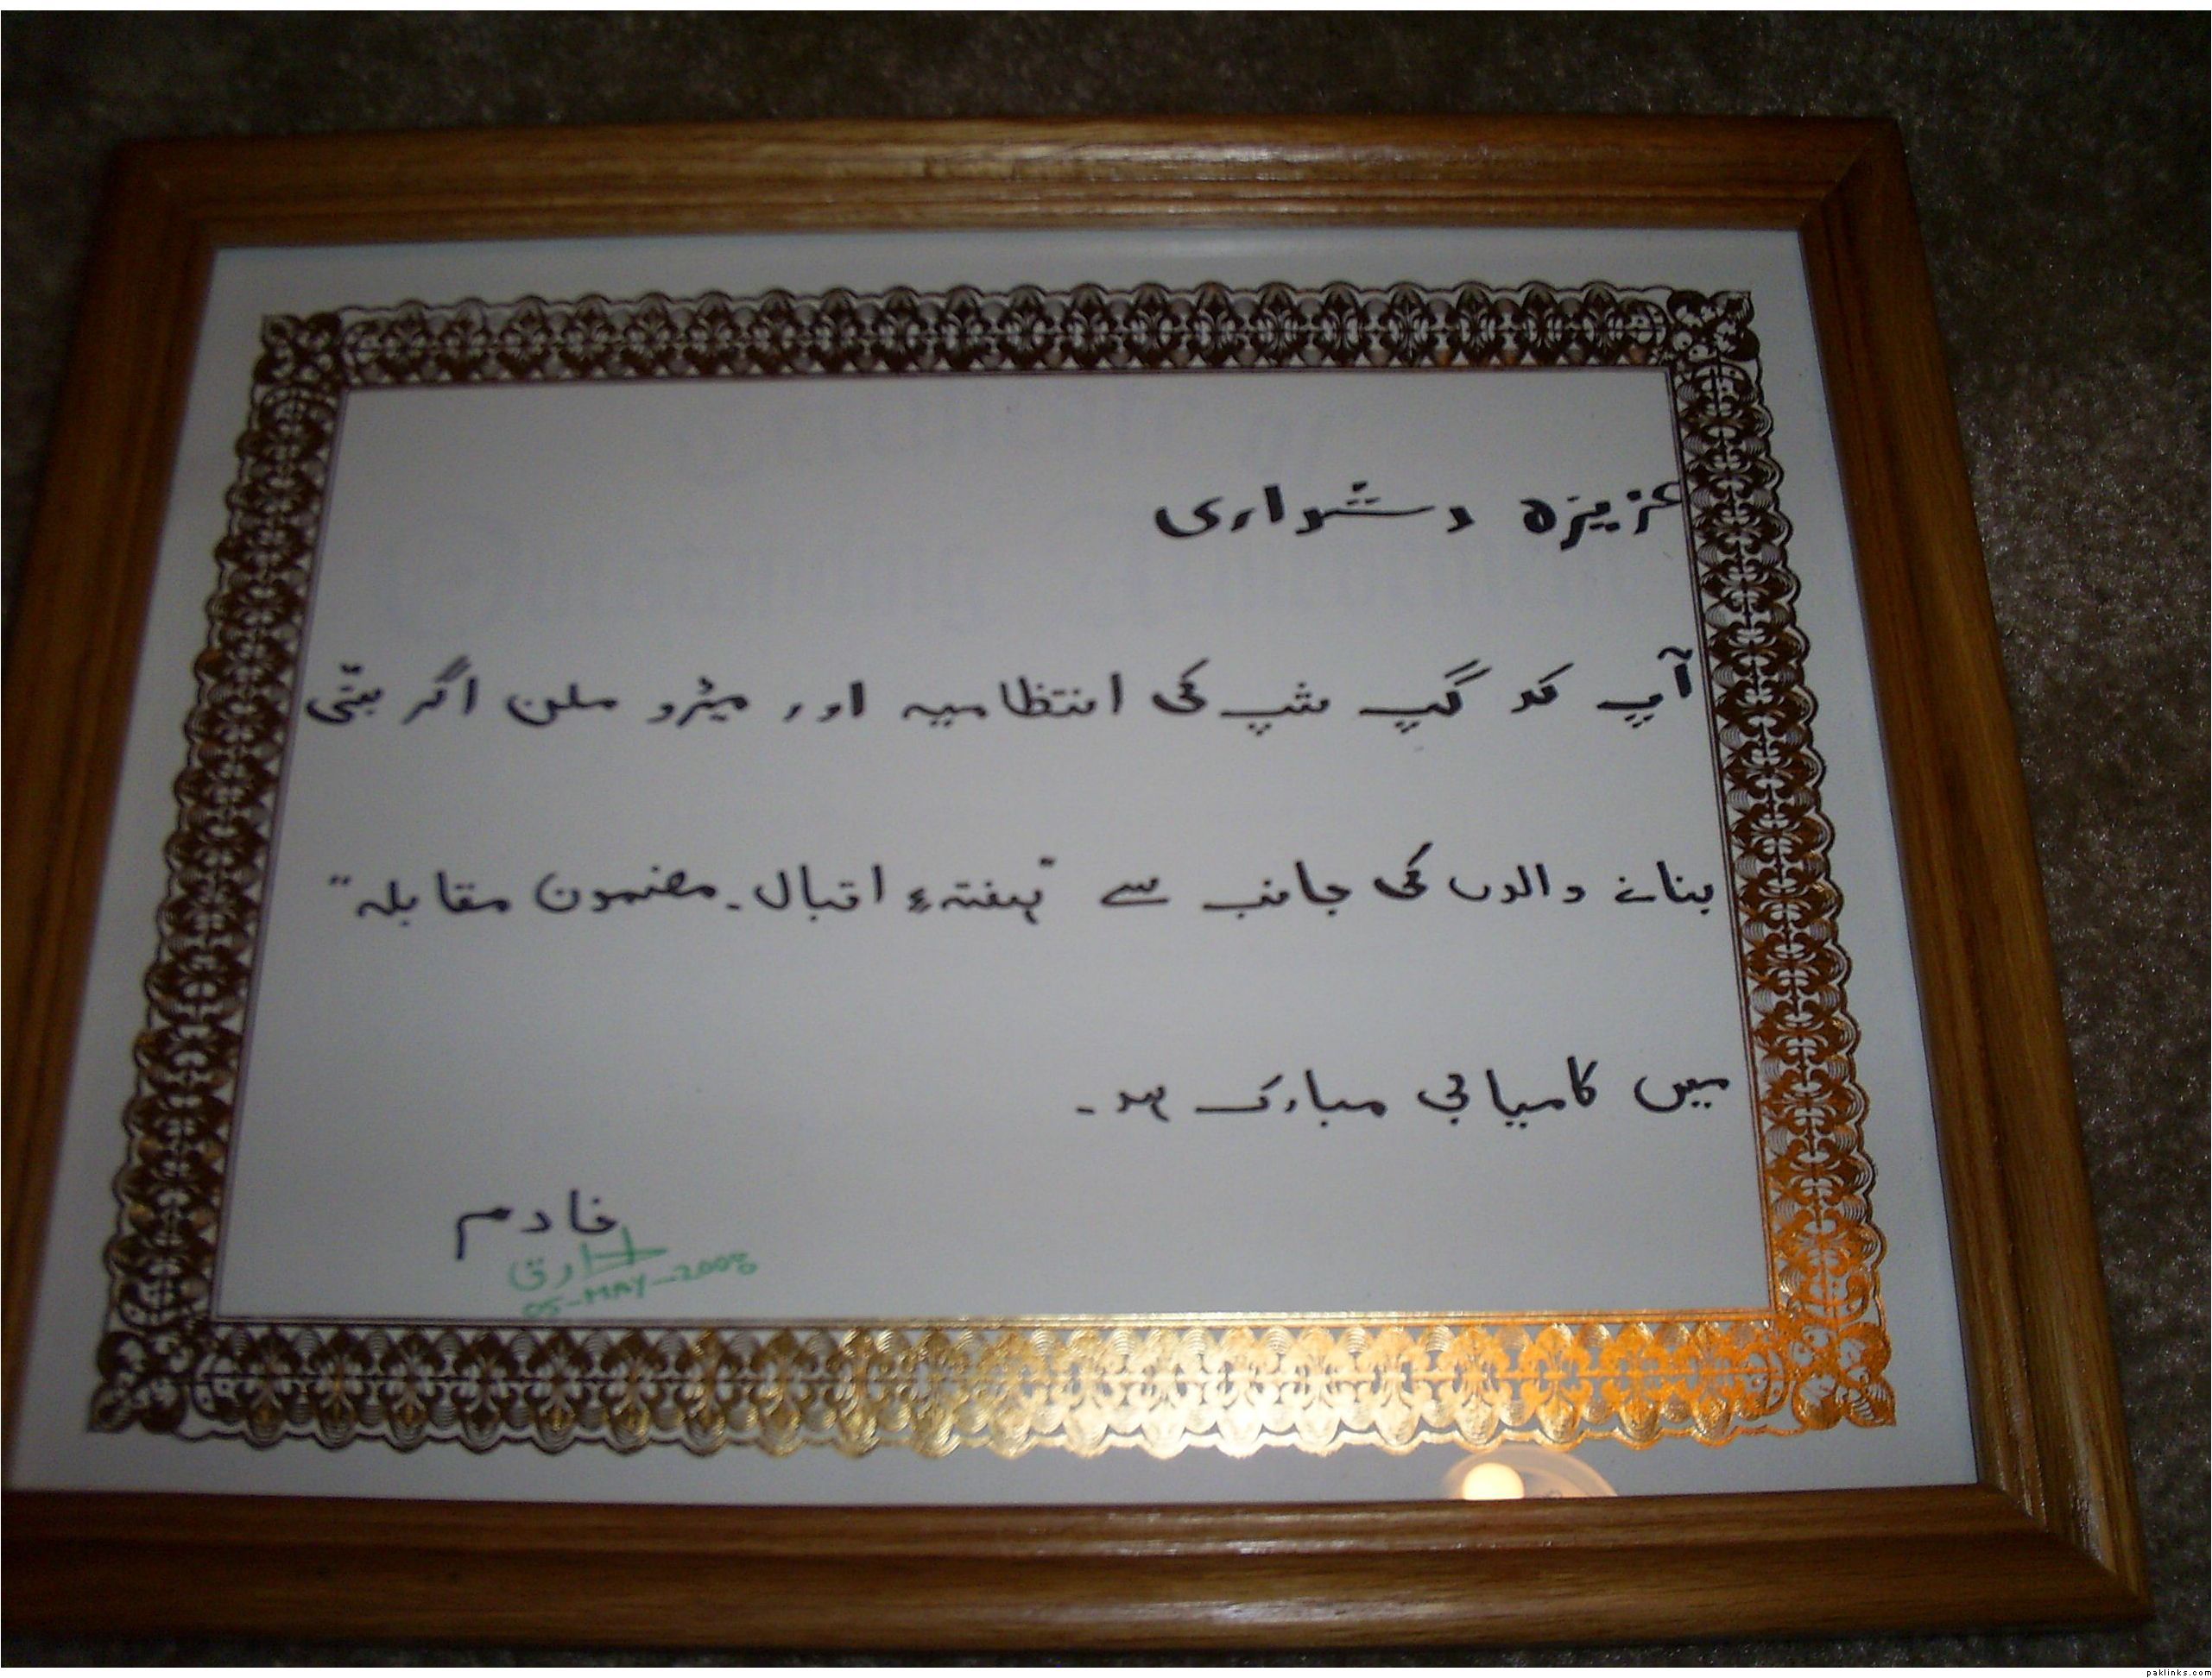 عزیزہ دشواری
آپ کو گپ شپ کی انتظامیہ اور میٹرو ملن اگر بتّی
بنانے والوں کی جانب سے "ہفتہء اقبال ۔ مضمون مقابلہ"
میں کامیابی مبارک ہو ۔
خادم
طارق
05-MAY-2008
paklinks.com